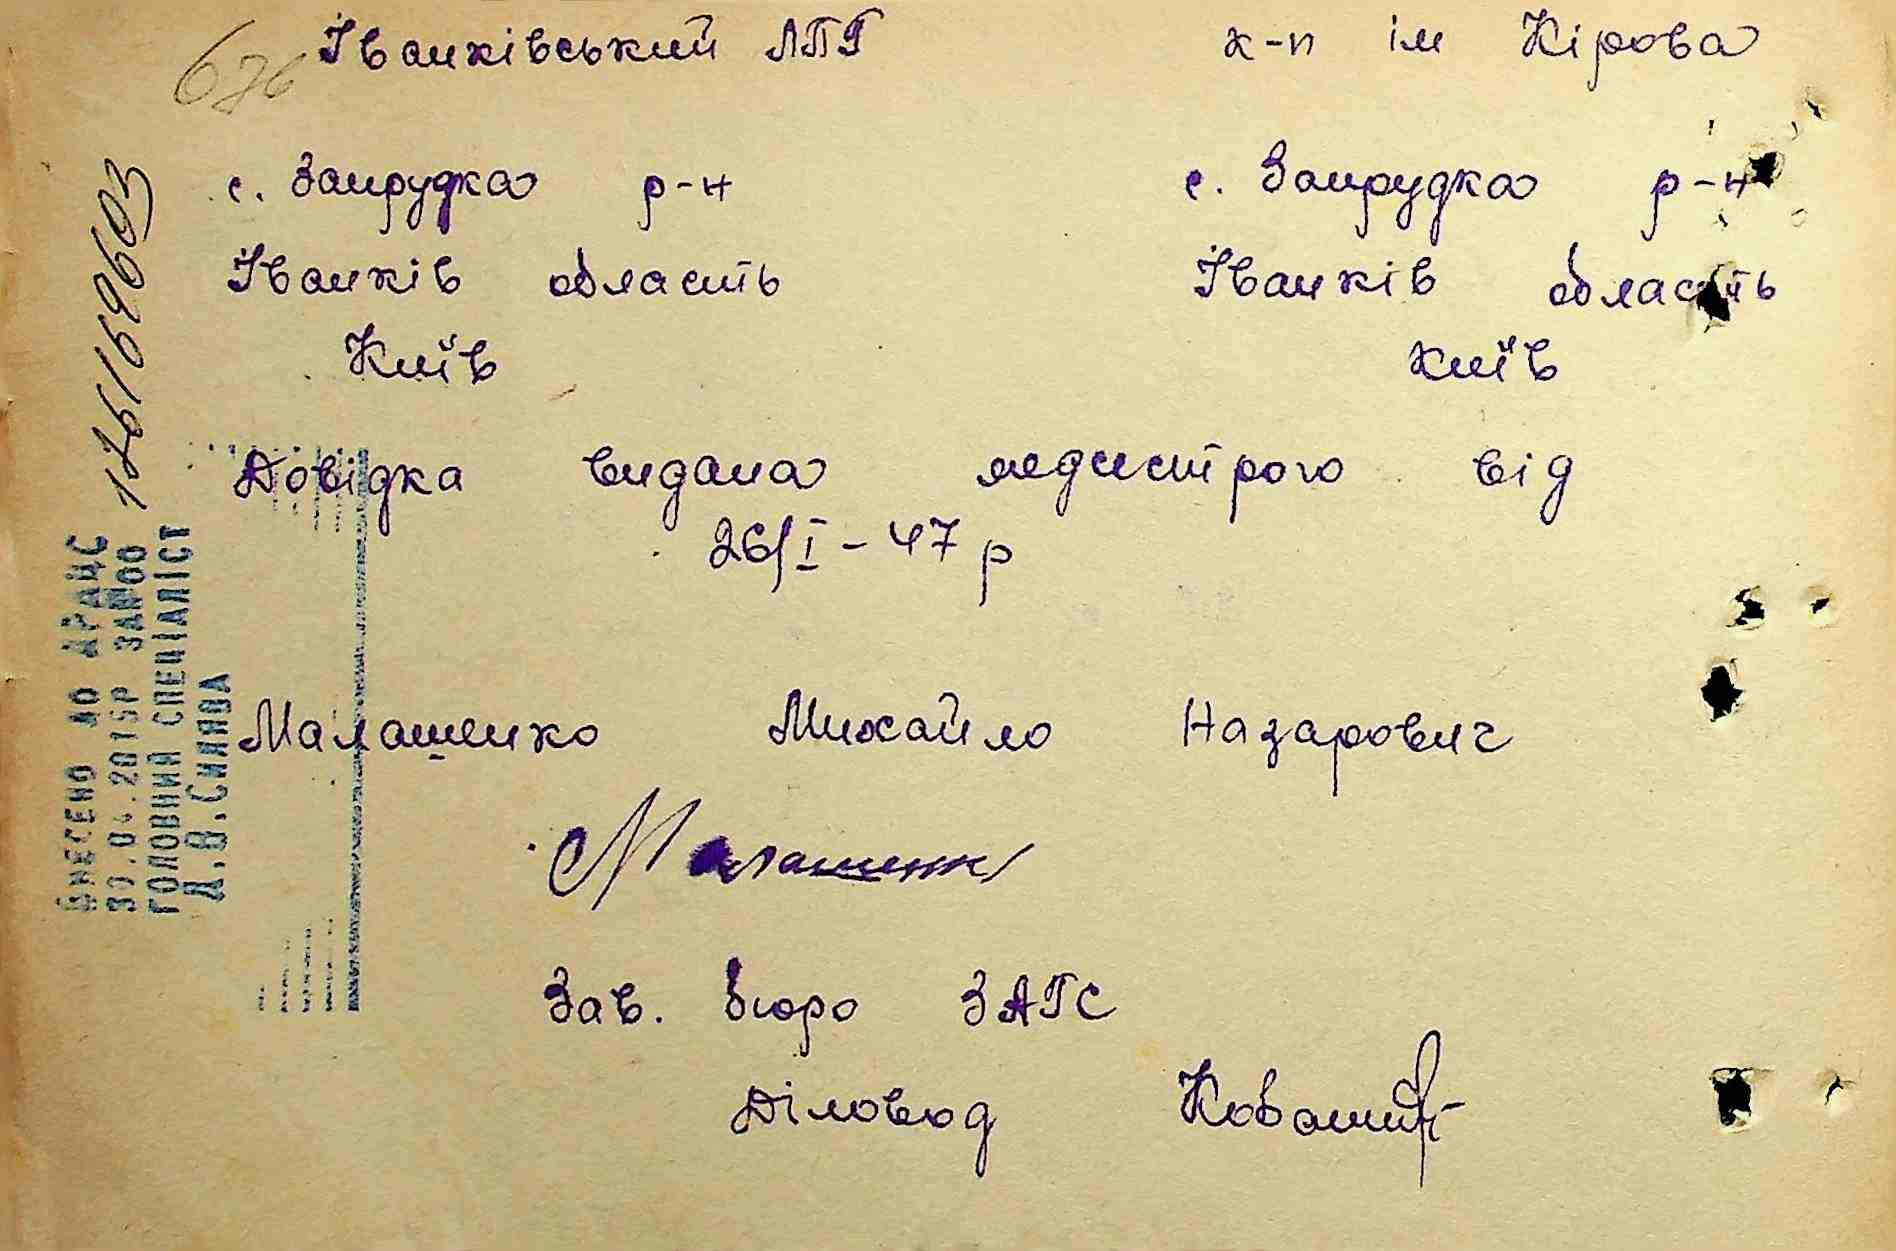 676 Іванківський ЛПГ к-п ім Кірова
с. Запрудка р-н с. Запрудка р-н
Іванків область Іванків область
Київ Київ
Довідка видана медсестрою від
26/I - 47 р
Малашенко Михайло Назарович
Малашенк
Зав. бюро ЗАГС
Діловод
ВНЕСЕНО ДО ДРАЦС
30.04.2015Р ЗА№00 12616969603
ГОЛОВНИЙ СПЕЦІАЛІСТ
Д.В.СИЛЯВА